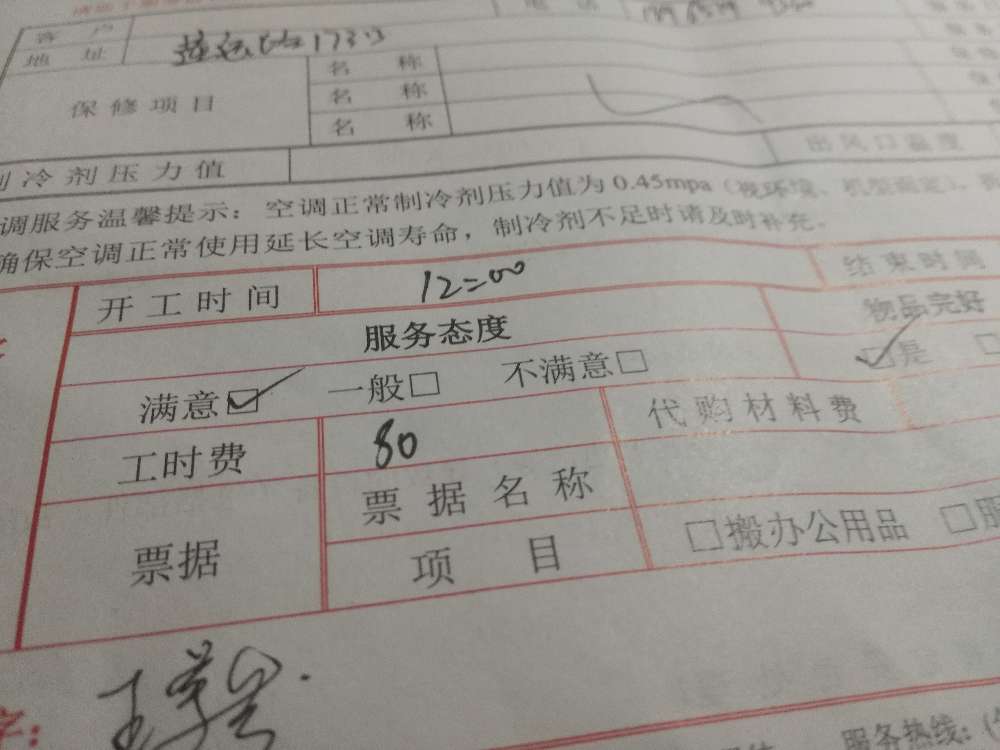 客 户
地 址
保修项目
名 称
名 称
名 称
制冷剂压力值
出风口温度
调服务温馨提示：空调正常制冷剂压力值为 0.45mpa（视环境、机型而定）、
确保空调正常使用延长空调寿命，制冷剂不足时请及时补充。
开工时间 12=00 结束时间
服务态度 物品完好
满意☑ 一般□ 不满意□ ☑是 □
工时费 80 代购材料费
票据 票据名称
项 目 □搬办公用品 □服
字：
服务热线：（